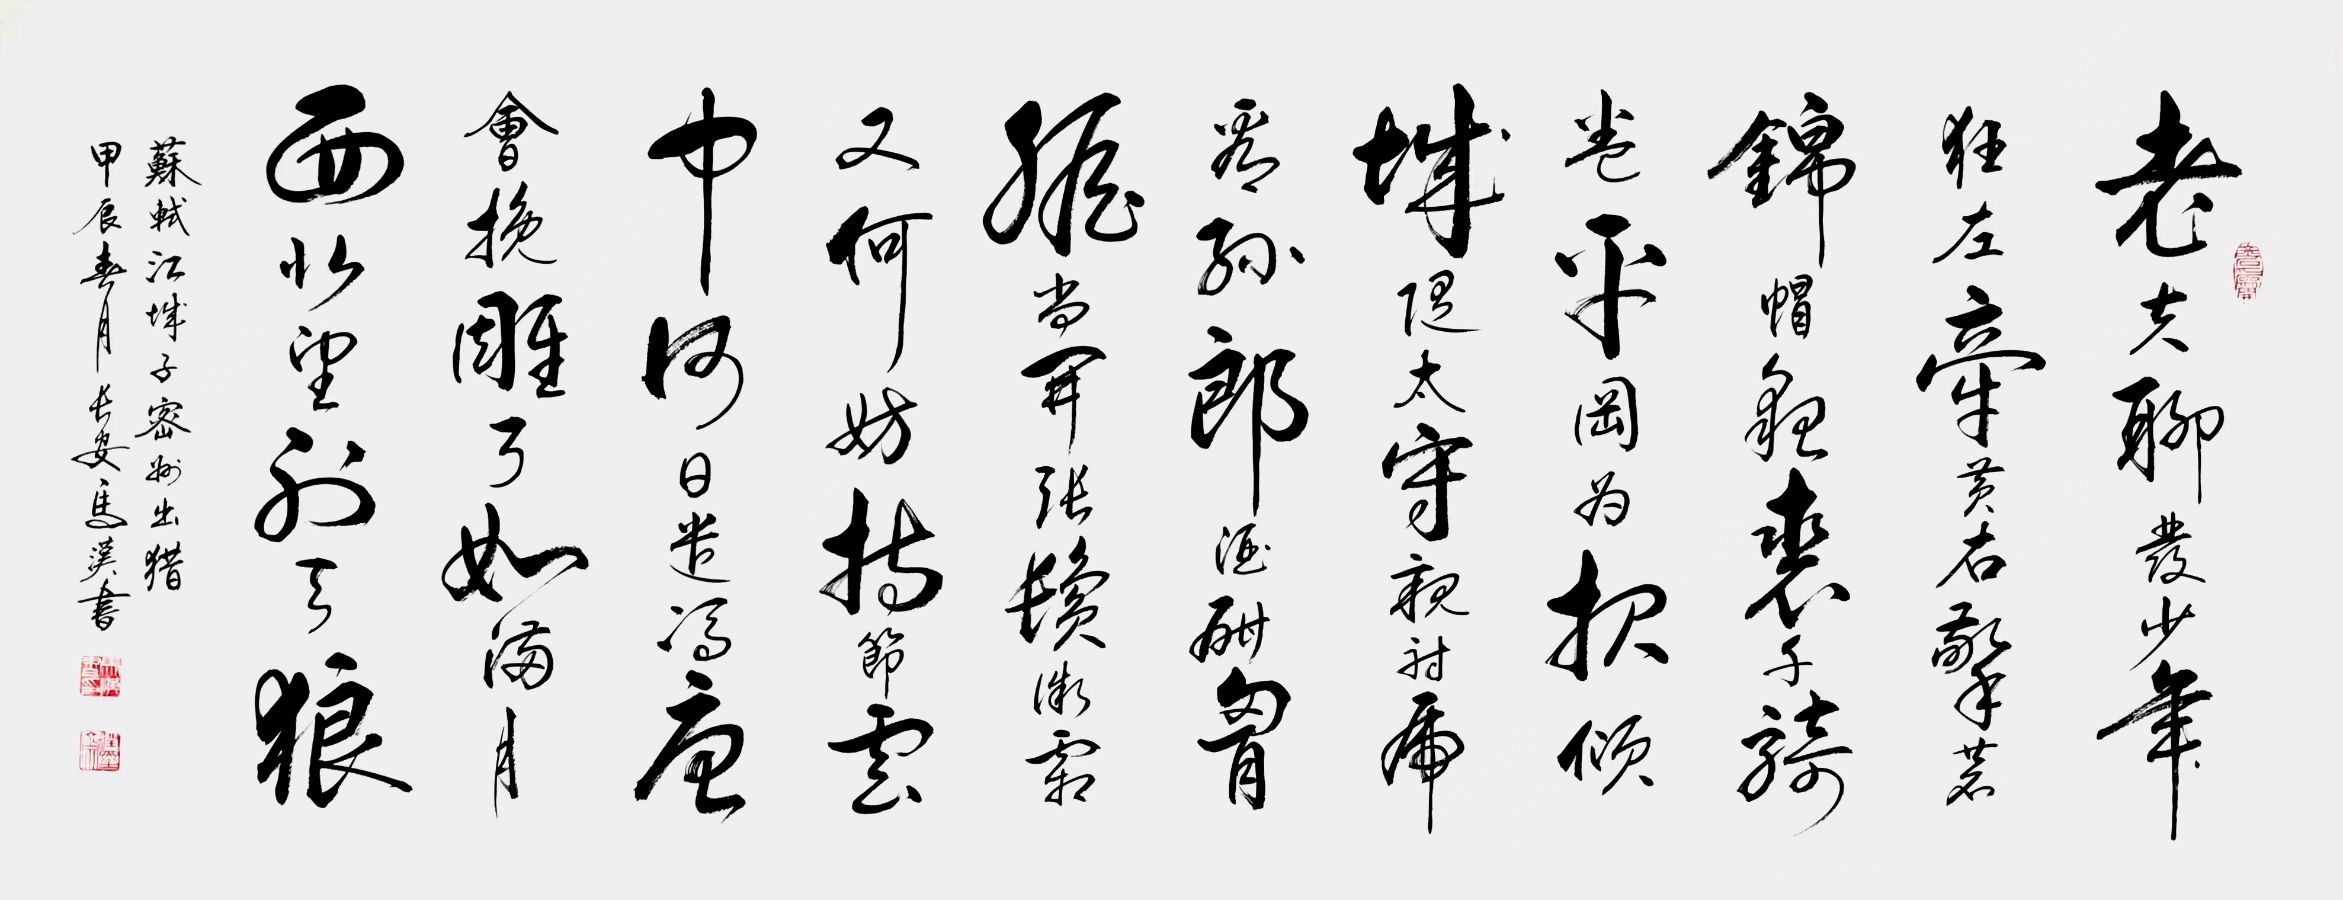 老夫聊發少年
狂左牽黃右擎蒼
錦帽貂裘千騎
卷平岡为报倾
城随太守親射虎
看孫郎酒酣胷
膽尚開張鬢微霜
又何妨持節雲
中何日遣馮唐
會挽雕弓如滿月
西北望射天狼
蘇軾江城子密州出猎
甲辰春月長安馬漢書